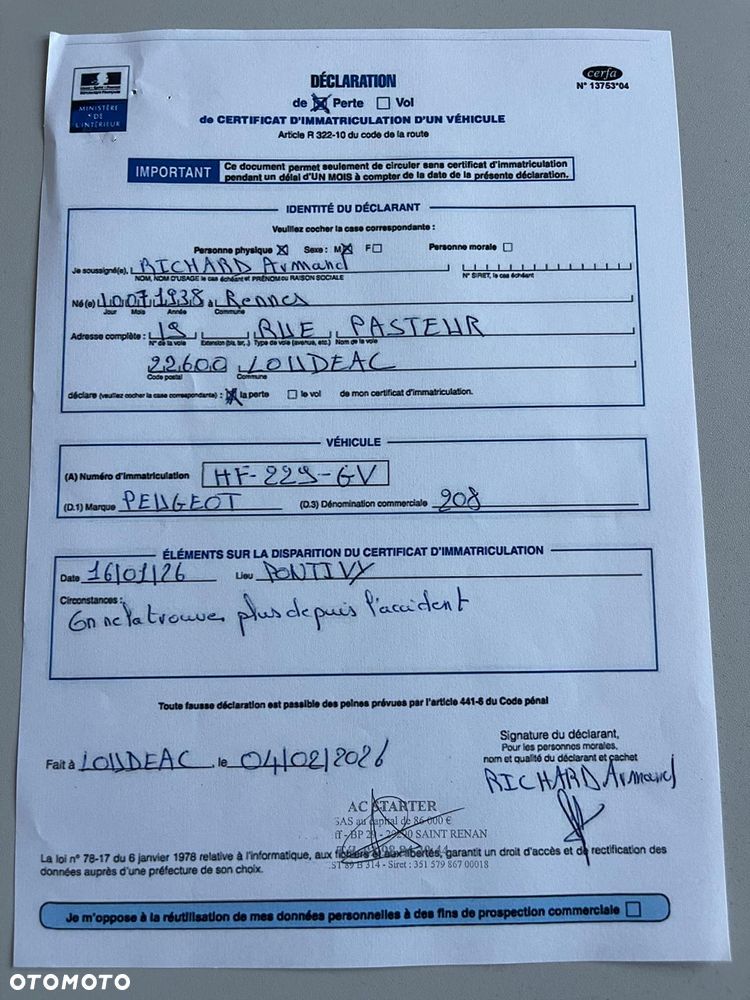 MINISTÈRE
DE
L'INTÉRIEUR
DÉCLARATION
de ☒ Perte ☐ Vol
de CERTIFICAT D'IMMATRICULATION D'UN VÉHICULE
Article R 322-10 du code de la route
cerfa
N° 13753*04
IMPORTANT
Ce document permet seulement de circuler sans certificat d'immatriculation
pendant un délai d'UN MOIS à compter de la date de la présente déclaration.
IDENTITÉ DU DÉCLARANT
Veuillez cocher la case correspondante :
Personne physique ☒ Sexe : M ☒ F ☐ Personne morale ☐
Je soussigné(e), RICHARD Armand
NOM, NOM D'USAGE le cas échéant et PRÉNOM ou RAISON SOCIALE N° SIRET, le cas échéant
Né(e) 10 07 1938 à Rennes
Jour Mois Année Commune
Adresse complète : 19 RUE PASTEUR
N° de la voie Extension (bis, ter, .) Type de voie (avenue, etc.) Nom de la voie
22600 LOUDEAC
Code postal Commune
déclare (veuillez cocher la case correspondante) : ☒ la perte ☐ le vol de mon certificat d'immatriculation.
VÉHICULE
(A) Numéro d'immatriculation HF-229-GV
(D.1) Marque PEUGEOT (D.3) Dénomination commerciale 208
ÉLÉMENTS SUR LA DISPARITION DU CERTIFICAT D'IMMATRICULATION
Date 16/01/26 Lieu PONTIVY
Circonstances :
On ne la trouve plus depuis l'accident
Toute fausse déclaration est passible des peines prévues par l'article 441-6 du Code pénal
Fait à LOUDEAC, le 04/02/2026
Signature du déclarant,
Pour les personnes morales,
nom et qualité du déclarant et cachet
RICHARD Armand
AC STARTER
SAS au capital de 86 000 €
BP 29 - 29290 SAINT RENAN
B 314 - Siret : 351 579 867 00018
La loi n° 78-17 du 6 janvier 1978 relative à l'informatique, aux fichiers et aux libertés, garantit un droit d'accès et de rectification des
données auprès d'une préfecture de son choix.
Je m'oppose à la réutilisation de mes données personnelles à des fins de prospection commerciale ☐
OTOMOTO